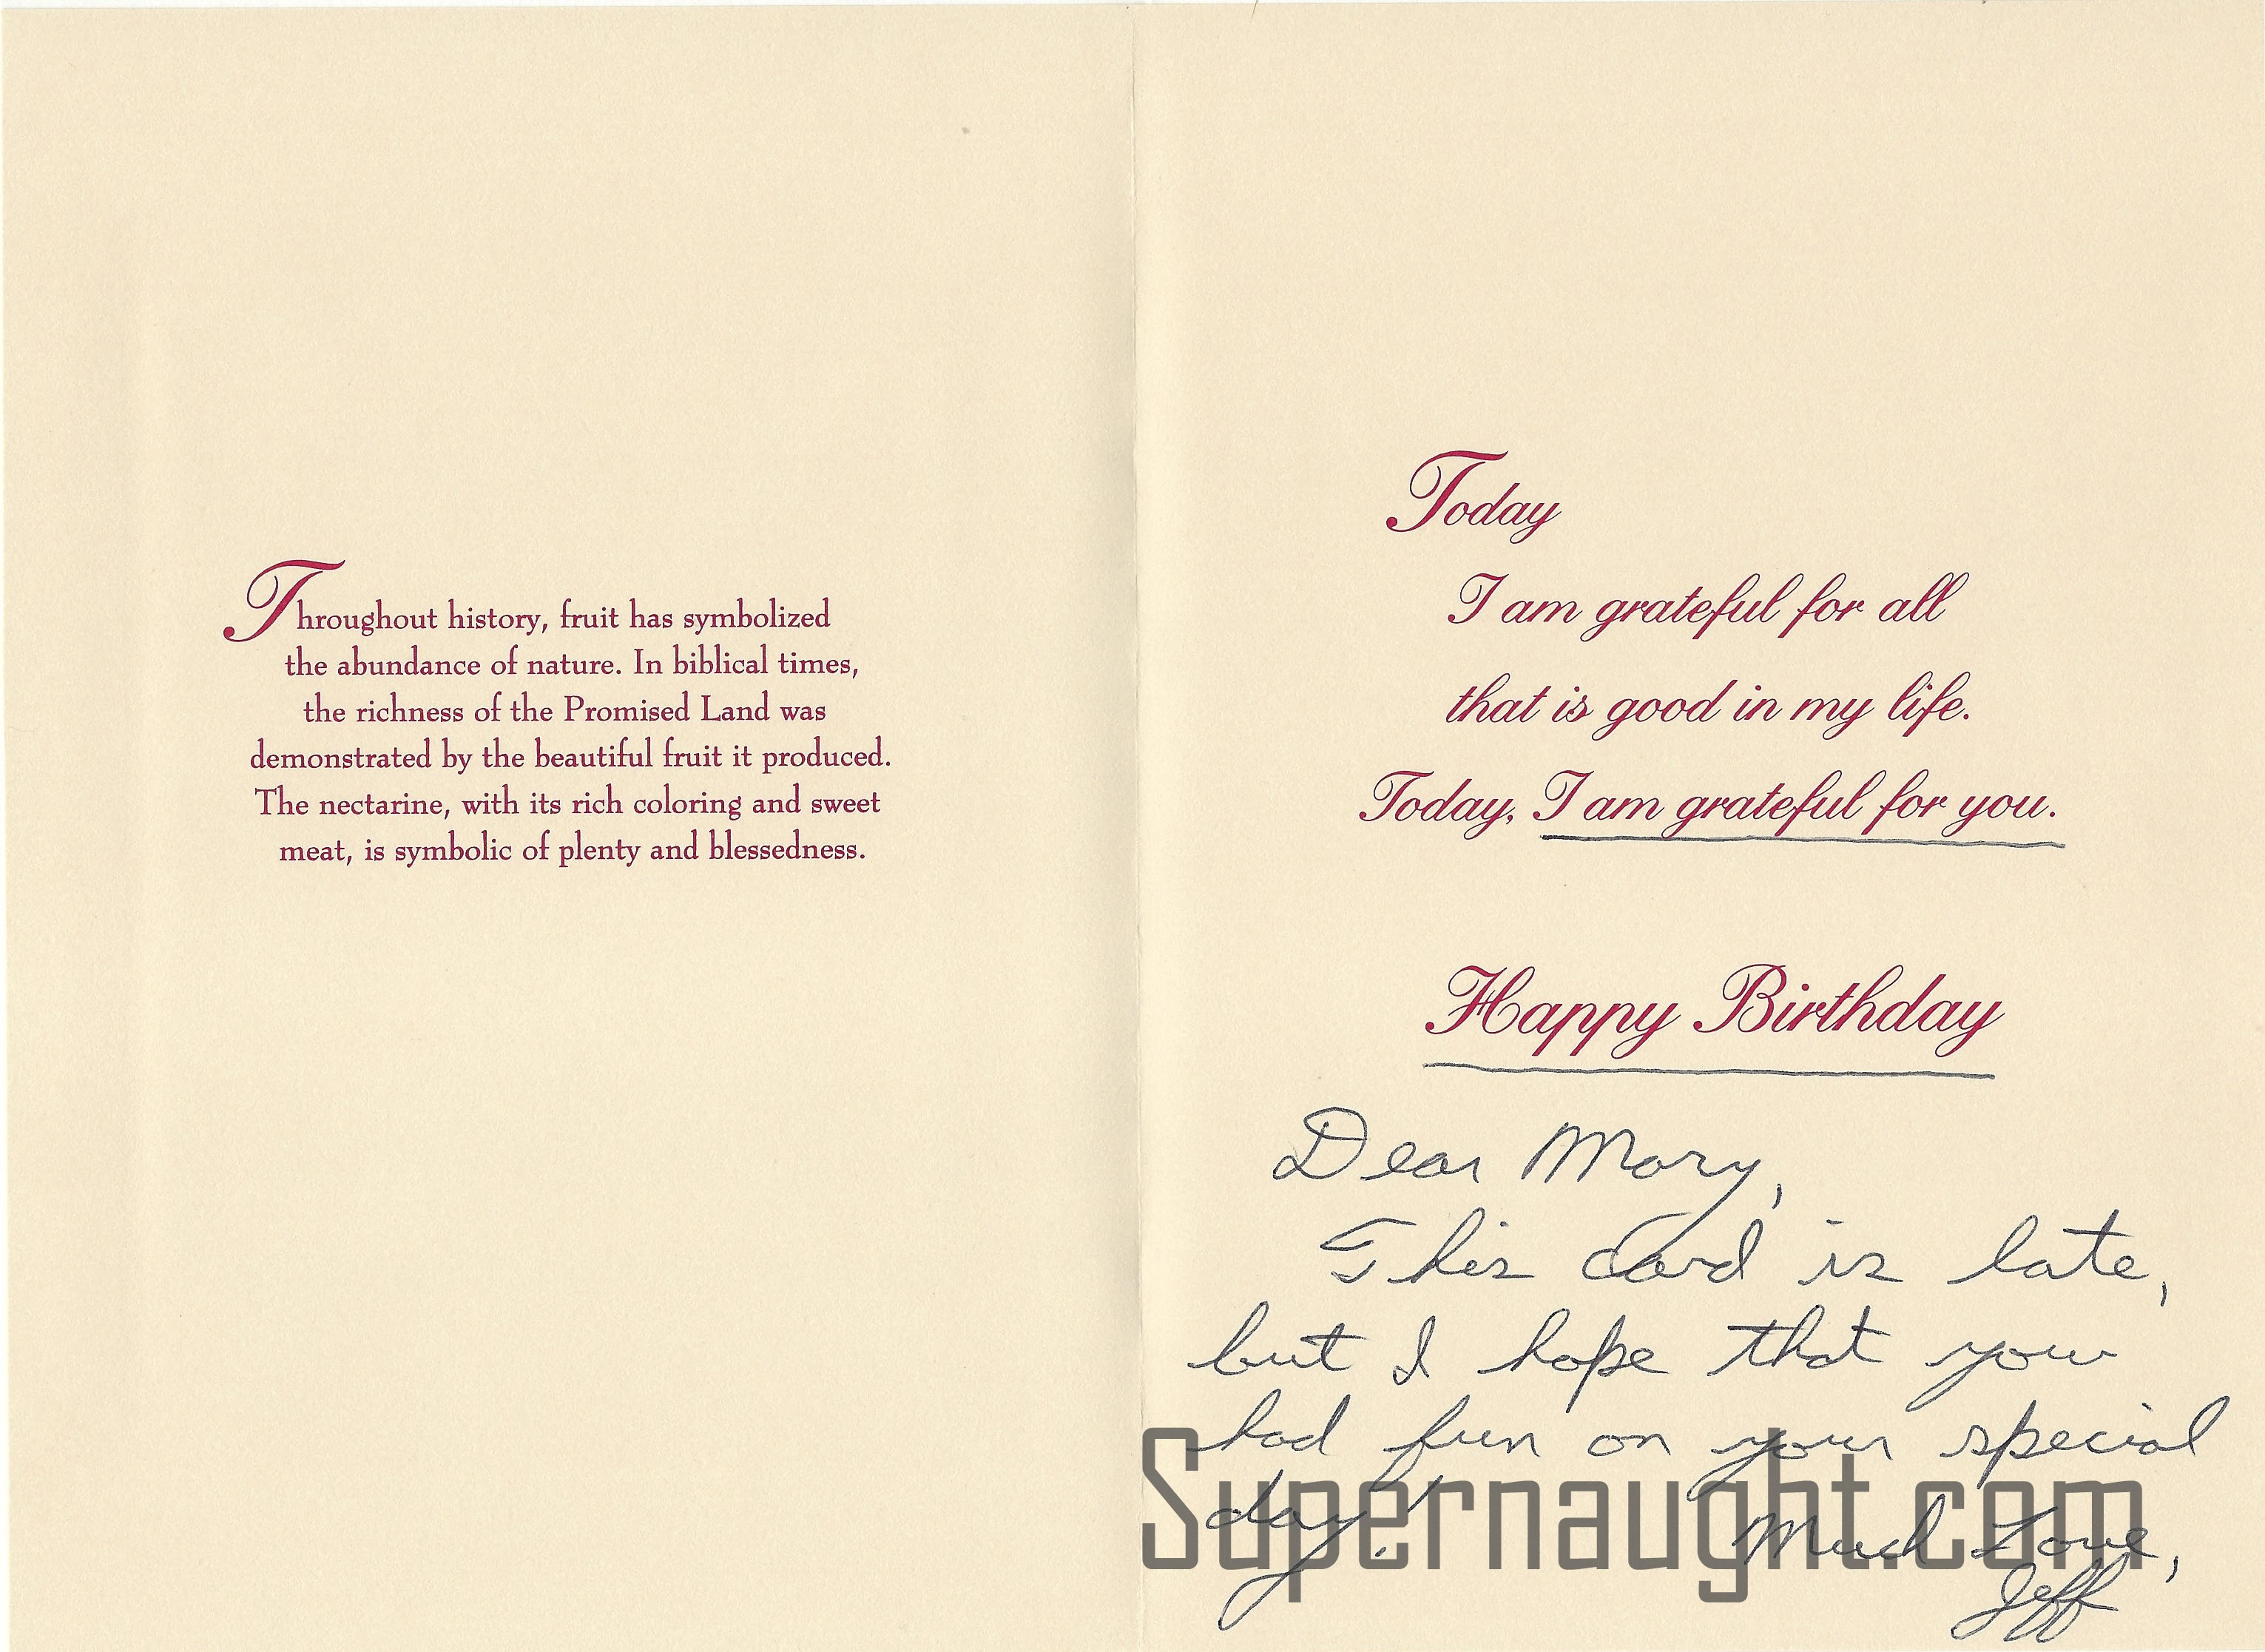 Throughout history, fruit has symbolized
the abundance of nature. In biblical times,
the richness of the Promised Land was
demonstrated by the beautiful fruit it produced.
The nectarine, with its rich coloring and sweet
meat, is symbolic of plenty and blessedness.
Today
I am grateful for all
that is good in my life.
Today, I am grateful for you.
Happy Birthday
Dear Mary,
This card is late,
but I hope that you
had fun on your special
day!
Much Love,
Jeff
Supernaught.com